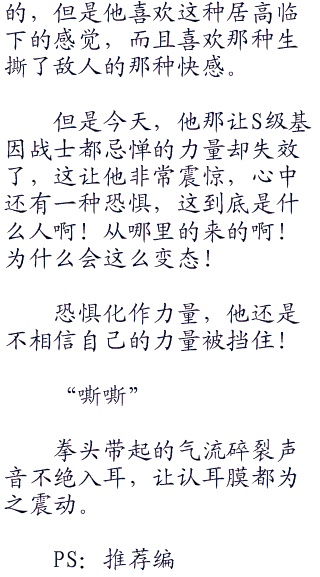 的，但是他喜欢这种居高临
下的感觉，而且喜欢那种生
撕了敌人的那种快感。
但是今天，他那让S级基
因战士都忌惮的力量却失效
了，这让他非常震惊，心中
还有一种恐惧，这到底是什
么人啊！从哪里的来的啊！
为什么会这么变态！
恐惧化作力量，他还是
不相信自己的力量被挡住！
“嘶嘶”
拳头带起的气流碎裂声
音不绝入耳，让认耳膜都为
之震动。
PS：推荐编